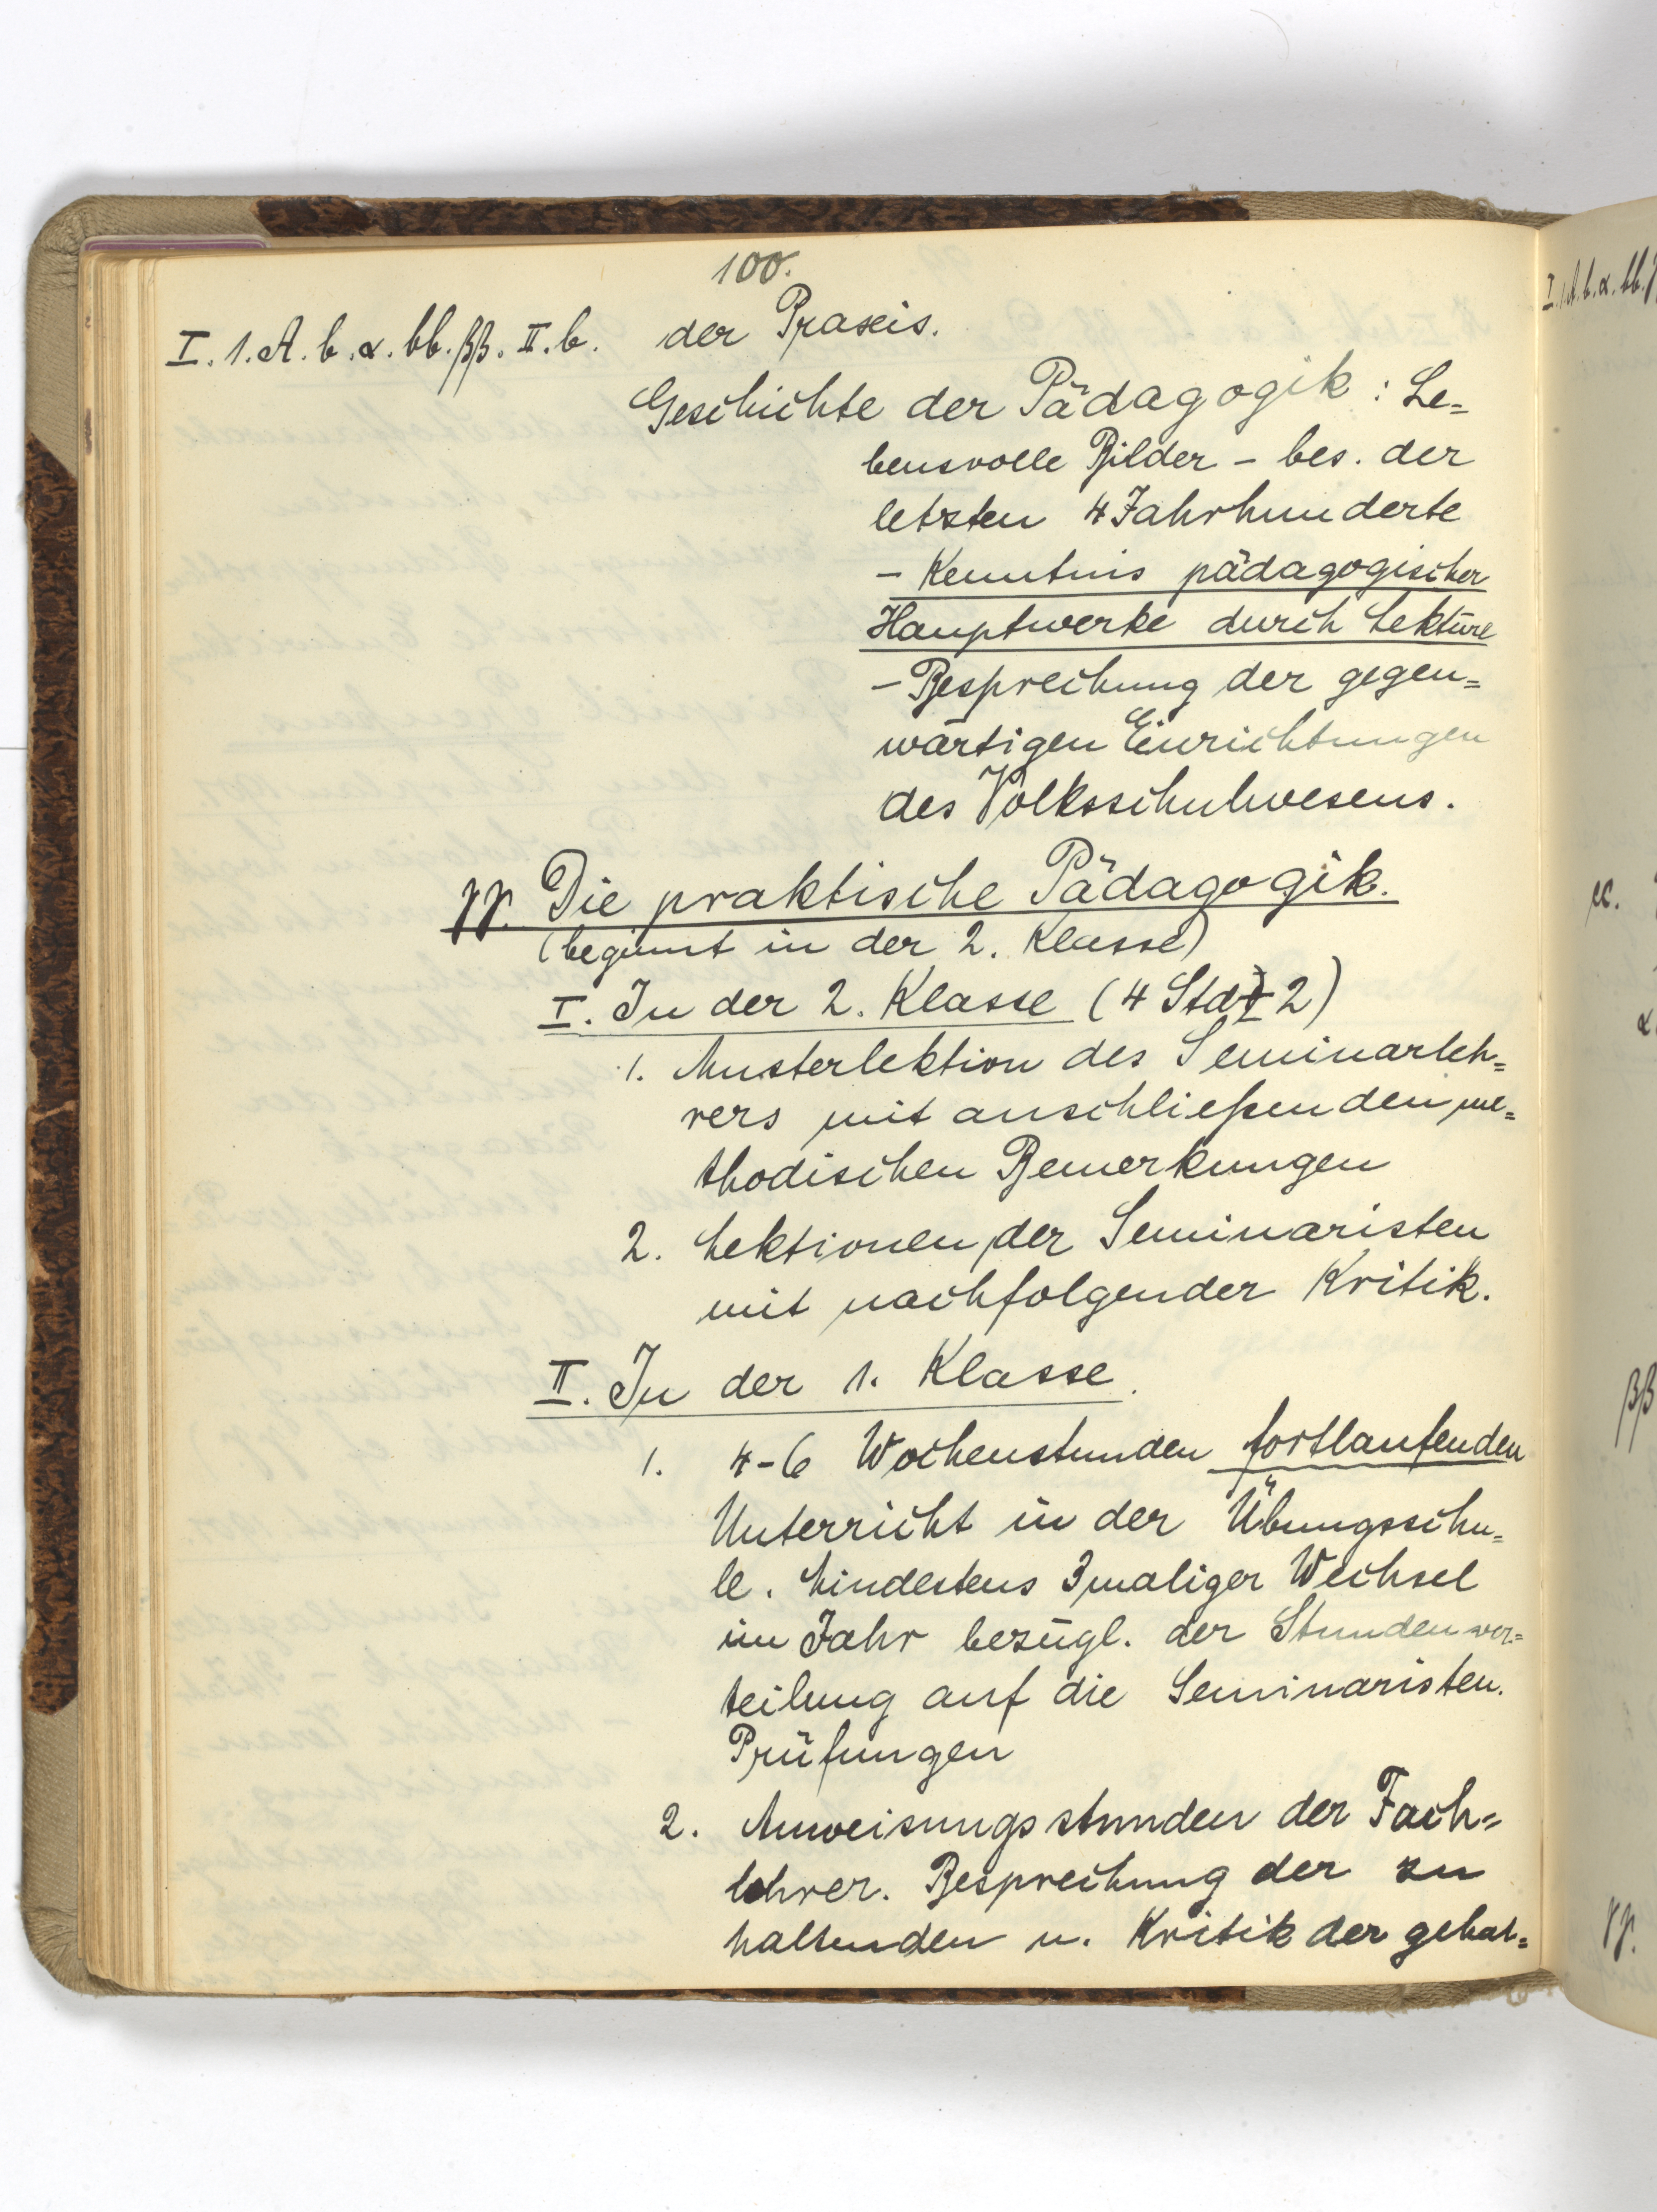 100.
I. 1. A. b. α. bb. ββ. II. b. der Praxis.
Geschichte der Pädagogik: Le=
bensvolle Bilder – bes. der
letzten 4 Jahrhunderte
– Kenntnis pädagogischer
Hauptwerke durch Lektüre
– Besprechung der gegen=
wärtigen Einrichtungen
des Volksschulwesens.
γγ. Die praktische Pädagogik.
(beginnt in der 2. Klasse)
I. In der 2. Klasse (4 Std + 2)
1. Musterlektion des Seminarleh=
rers mit anschließenden me=
thodischen Bemerkungen
2. Lektionen der Seminaristen
mit nachfolgender Kritik.
II. In der 1. Klasse.
1. 4-6 Wochenstunden fortlaufenden
Unterricht in der Übungsschu=
le. Mindestens 3maliger Wechsel
im Jahr bezügl. der Stundenver=
teilung auf die Seminaristen.
Prüfungen
2. Anweisungsstunden der Fach=
lehrer. Besprechung der zu
haltenden u. Kritik der gehal=
I. 1. A. b. α. bb.
cc.
α
ββ
γγ.